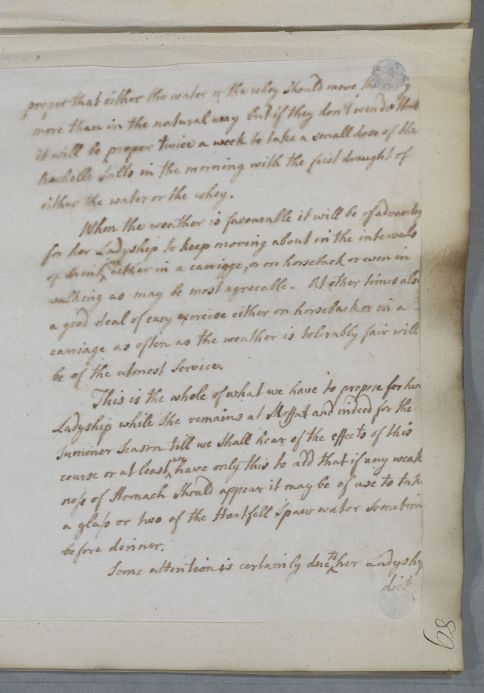 proper that either the water or the whey should move the
more than in the natural way but if they don't even do that
it will be proper twice a week to take a small dose of the
Rochelle Salts in the morning with the first draught of
either the water or the whey.
When the weather is favourable it will be of advantag
for her Ladyship to keep moving about in the intervals
of drink, either in a carriage, or on horseback or even in
walking as may be most agreeable. At other times also
a good deal of easy exercise either on horseback or in a
carriage as often as the weather is tolerably fair will
be of the utmost Service.
This is the whole of what we have to propose for her
Ladyship while she remains at Moffat and indeed for the
Summer Season till we shall hear of the effects of this
course or at least we have only this to add that if any weak
ness of Stomach should appear it may be of use to tak
a glass or two of the Hartfell Spaw water sometim
before dinner.
Some attention is certainly due to her Ladyship
diet
68